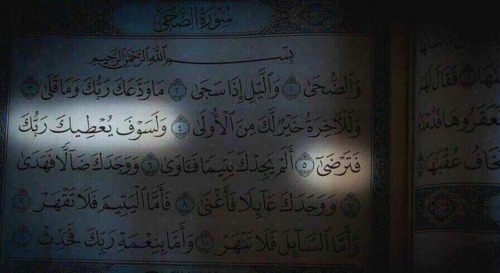 سُورَةُ الضُّحَىٰ
بِسْمِ اللَّهِ الرَّحْمَٰنِ الرَّحِيمِ
وَالضُّحَىٰ ١ وَاللَّيْلِ إِذَا سَجَىٰ ٢ مَا وَدَّعَكَ رَبُّكَ وَمَا قَلَىٰ ٣
وَلَلْآخِرَةُ خَيْرٌ لَّكَ مِنَ الْأُولَىٰ ٤ وَلَسَوْفَ يُعْطِيكَ رَبُّكَ
فَتَرْضَىٰ ٥ أَلَمْ يَجِدْكَ يَتِيمًا فَآوَىٰ ٦ وَوَجَدَكَ ضَالًّا فَهَدَىٰ
٧ وَوَجَدَكَ عَائِلًا فَأَغْنَىٰ ٨ فَأَمَّا الْيَتِيمَ فَلَا تَقْهَرْ ٩
وَأَمَّا السَّائِلَ فَلَا تَنْهَرْ ١٠ وَأَمَّا بِنِعْمَةِ رَبِّكَ فَحَدِّثْ ١١
فَقَالَ لَهُمْ
فَعَقَرُوهَا فَدَمْدَمَ
يَخَافُ عُقْبَاهَا